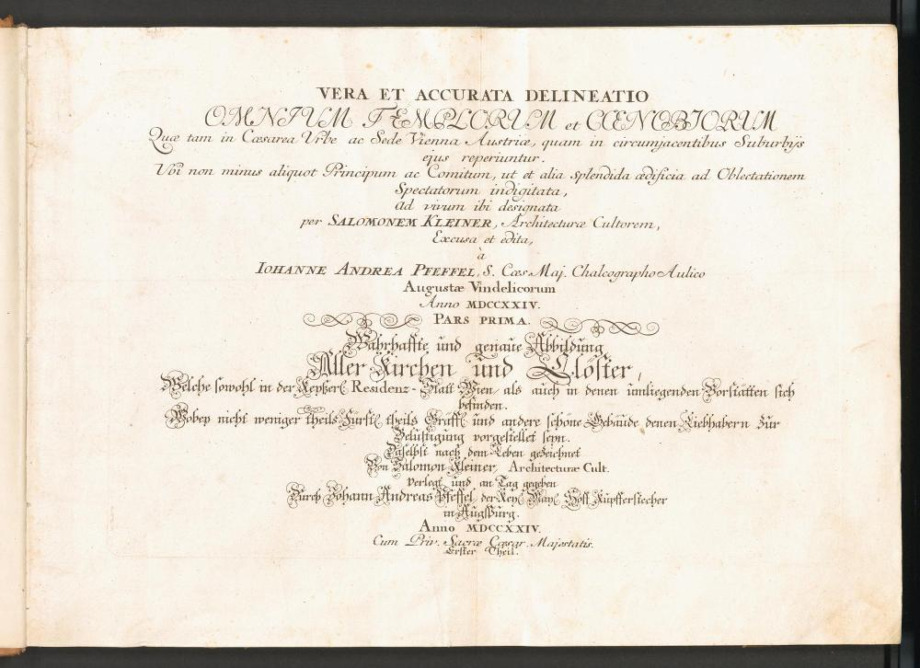 VERA ET ACCURATA DELINEATIO
OMNIUM TEMPLORUM et COENOBIORUM
Quæ tam in Cæsarea Urbe ac Sede Vienna Austriæ, quam in circumjacentibus Suburbijs
ejus reperiuntur.
Ubi non minus aliquot Principum ac Comitum, ut et alia splendida ædificia ad Oblectationem
Spectatorum indigitata,
ad vivum ibi designata
per SALOMONEM KLEINER, Architecturæ Cultorem,
Excusa et edita,
à
IOHANNE ANDREA PFEFFEL, S. Cæs. Maj. Chalcographo Aulico
Augustæ Vindelicorum
Anno MDCCXXIV.
PARS PRIMA.
Wahrhaffte und genaue Abbildung
Aller Kirchen und Clöster,
Welche sowohl in der Keyßerl. Residenz-Statt Wien, als auch in denen umliegenden Vorstätten sich
befinden.
Wobey nicht weniger theils Fürstl. theils Gräffl. und andere schöne Gebäude denen Liebhabern zur
Belustigung vorgestellet seyn.
Daselbst nach dem Leben gezeichnet
Von Salomon Kleiner, Architecturæ Cult.
verlegt und an Tag gegeben
Durch Johann Andreas Pfeffel der Key. May. Hoff Kupfferstecher
in Augspurg.
Anno MDCCXXIV.
Cum Priv. Sacræ Cæsar. Majestatis.
Erster Theil.